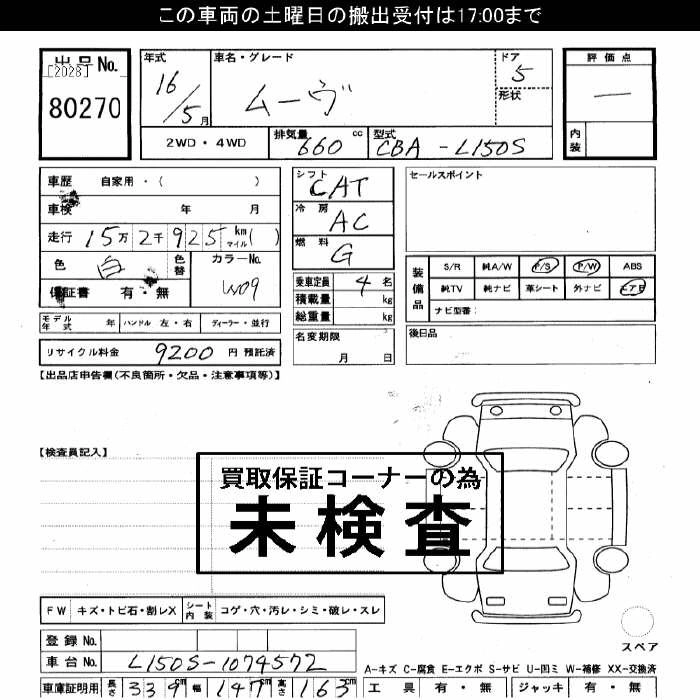 この車両の土曜日の搬出受付は17:00まで
出品No.
[2028]
80270
年式
16/5月
車名・グレード
ムーヴ
ドア
5
形状
評価点
―
内装
2WD・4WD
排気量
660 cc
型式
CBA-L150S
車歴 自家用・( )
車検 年 月
走行 15万2千925 km マイル( )
色 白
色替
カラーNo.
W09
保証書 有・無
シフト
CAT
冷房
AC
燃料
G
セールスポイント
装備品
S/R 純A/W P/S P/W ABS
純TV 純ナビ 革シート 外ナビ エアB
ナビ型番:
乗車定員 4名
積載量 kg
総重量 kg
モデル年式 年 ハンドル 左・右 ディーラー・並行
名変期限
月 日
後日品
リサイクル料金 9200 円 預託済
【出品店申告欄(不良箇所・欠品・注意事項等)】
【検査員記入】
買取保証コーナーの為
未検査
FW キズ・トビ石・割レX シート内装 コゲ・穴・汚レ・シミ・破レ・スレ
スペア
登録No.
車台No. L150S-1074572
A-キズ C-腐食 E-エクボ S-サビ U-凹ミ W-補修 XX-交換済
車庫証明用 長さ 339cm 幅 147cm 高さ 163cm
工具 有・無 ジャッキ 有・無